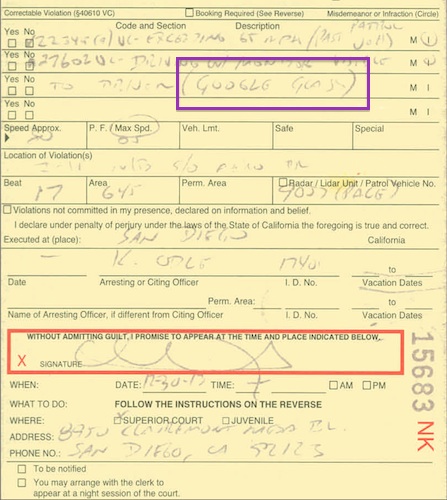 Correctable Violation (§40610 VC) Booking Required (See Reverse) Misdemeanor or Infraction (Circle)
Yes No Code and Section Description PATROL
22349(a) VC- EXCEEDING 65 MPH (PAST M I
Yes No
27602 VC- DRIVING W/ MONITOR VISIBLE M I
Yes No
TO DRIVER (GOOGLE GLASS) M I
Yes No
M I
Speed Approx. P. F. / Max Spd. Veh. Lmt. Safe Special
80 65
Location of Violation(s)
Beat Area Perm. Area Radar / Lidar Unit / Patrol Vehicle No.
17 645 (PACE)
Violations not committed in my presence, declared on information and belief.
I declare under penalty of perjury under the laws of the State of California the foregoing is true and correct.
Executed at (place): SAN DIEGO California
K. ODLE to
Date Arresting or Citing Officer I. D. No. Vacation Dates
Perm. Area: to
Name of Arresting Officer, if different from Citing Officer I. D. No. Vacation Dates
WITHOUT ADMITTING GUILT, I PROMISE TO APPEAR AT THE TIME AND PLACE INDICATED BELOW.
X SIGNATURE
WHEN: DATE: TIME: AM PM
WHAT TO DO: FOLLOW THE INSTRUCTIONS ON THE REVERSE
WHERE: SUPERIOR COURT JUVENILE
ADDRESS: 8950 CLAIREMONT MESA BL.
PHONE NO.: SAN DIEGO, CA 92123
To be notified
You may arrange with the clerk to
appear at a night session of the court.
15683 NK